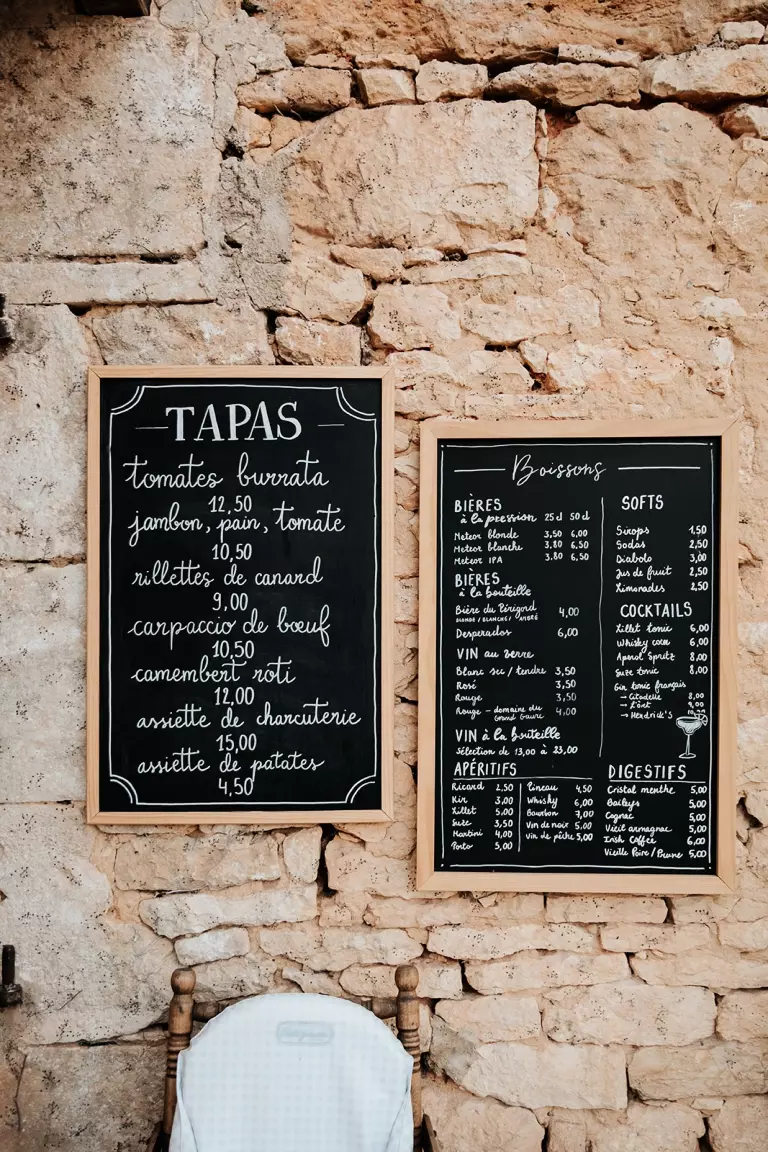 TAPAS
tomates burrata
12,50
jambon, pain, tomate
10,50
rillettes de canard
9,00
carpaccio de bœuf
10,50
camembert roti
12,00
assiette de charcuterie
15,00
assiette de patates
4,50
Boissons
BIÈRES
à la pression 25 cl 50 cl
Meteor blonde 3,50 6,00
Meteor blanche 3,80 6,50
Meteor IPA 3,80 6,50
BIÈRES
à la bouteille
Bière du Périgord 4,00
BLONDE / BLANCHE / AMBRÉ
Desperados 6,00
VIN au verre
Blanc sec / tendre 3,50
Rosé 3,50
Rouge 3,50
Rouge - domaine du
Grand Gaure 4,00
VIN à la bouteille
Sélection de 13,00 à 23,00
SOFTS
Sirops 1,50
Sodas 2,50
Diabolo 3,00
Jus de fruit 2,50
Limonades 2,50
COCKTAILS
Lillet tonic 6,00
Whisky coca 6,00
Aperol Spritz 8,00
Suze tonic 8,00
Gin tonic français
→ Citadelle 8,00
→ 9,00
→ Hendrick's
APÉRITIFS
Ricard 2,50
Kir 3,00
Lillet 5,00
Suze 3,50
Martini 4,00
Porto 5,00
Pineau 4,50
Whisky 6,00
Bourbon 7,00
Vin de noix 5,00
Vin de pêche 5,00
DIGESTIFS
Cristal menthe 5,00
Baileys 5,00
Cognac 5,00
Vieil armagnac 5,00
Irish Coffee 6,00
Vieille Poire / Prune 5,00